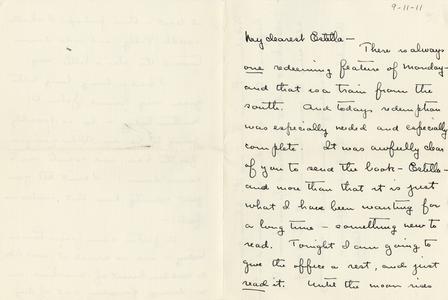 9-11-11
My dearest Estella—
There is always
one redeeming feature of Monday—
and that is a train from the
south. And todays redemption
was especially needed and especially
complete. It was awfully dear
of you to send the book—Estella—
and more than that it is just
what I have been wanting for
a long time — something new to
read. Tonight I am going to
give the office a rest, and just
read it. Until the moon rises